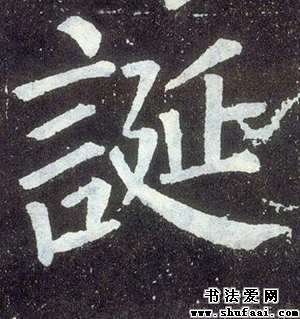 誕
书法爱网
www.shufaai.com